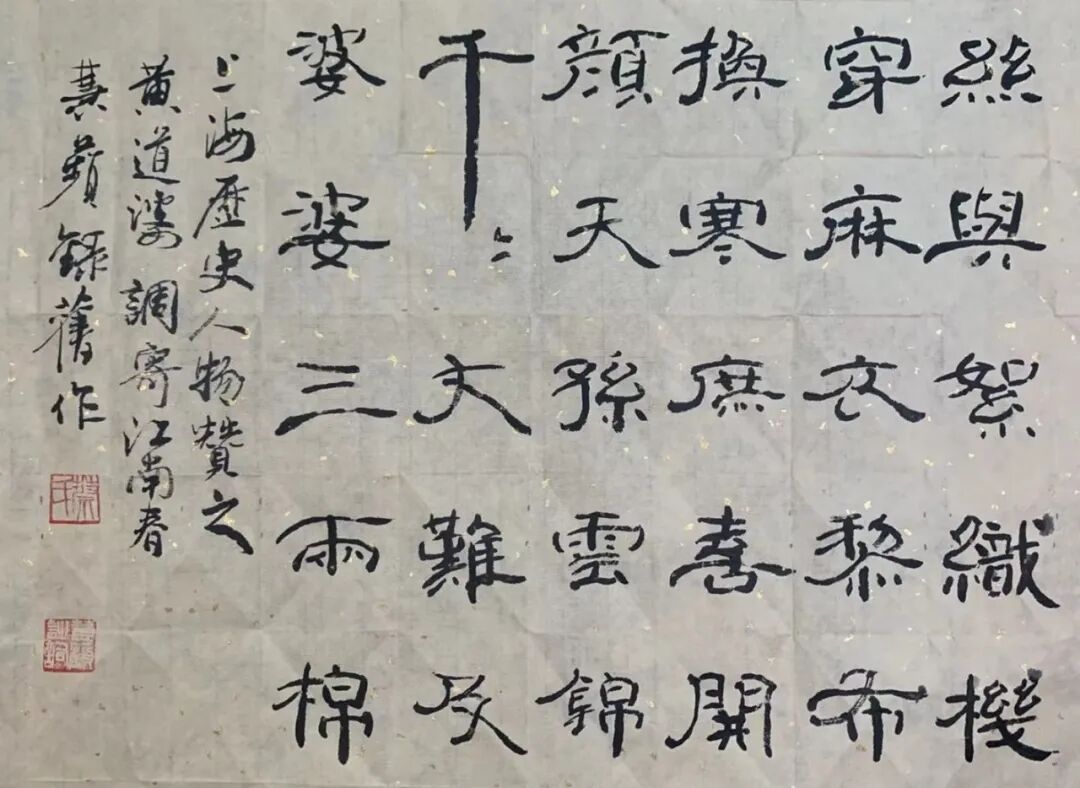 絲與絮織機
穿麻衣黎布
換寒庶喜開
顏天孫雲錦
千〻丈難及
婆婆三兩棉
上海歷史人物贊之
黃道婆 調寄江南春
錄舊作